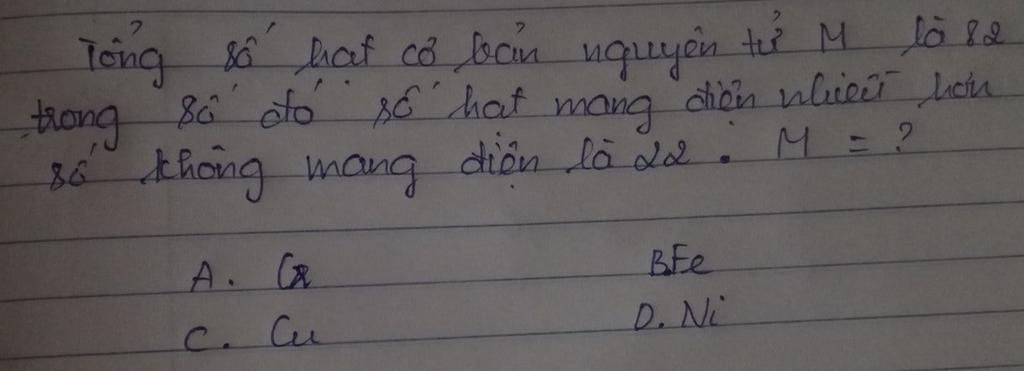 Tổng số hạt cơ bản nguyên tử M là 82
trong số đó số hạt mang điện nhiều hơn
số không mang điện là 22. M = ?
A. Cr B Fe
C. Cu D. Ni